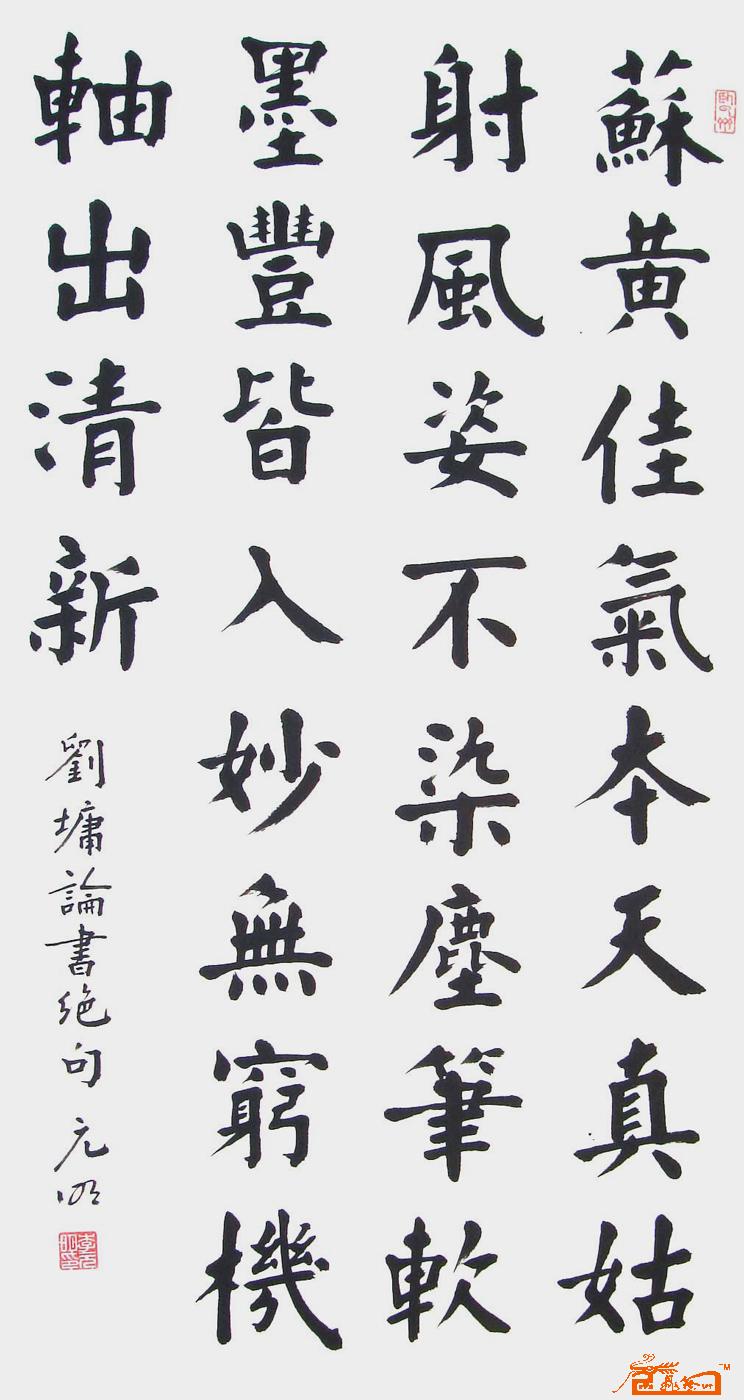 蘇黃佳氣本天真姑
射風姿不染塵筆軟
墨豐皆入妙無窮機
軸出清新
劉墉論書絶句 元明